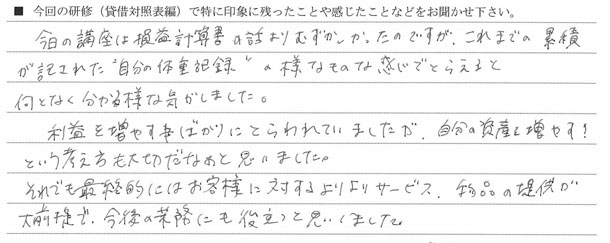 ■ 今回の研修（貸借対照表編）で特に印象に残ったことや感じたことなどをお聞かせ下さい。
今日の講座は損益計算書の話よりむずかしかったのですが、これまでの累積
が記された"自分の体重記録"の様なものな感じでとらえると
何となく分かる様な気がしました。
利益を増やす事ばかりにとらわれていましたが、自分の資産を増やす！
という考え方も大切だなあと思いました。
それでも最終的にはお客様に対するよりよりサービス、物品の提供が
大前提で、今後の業務にも役立つと思いました。